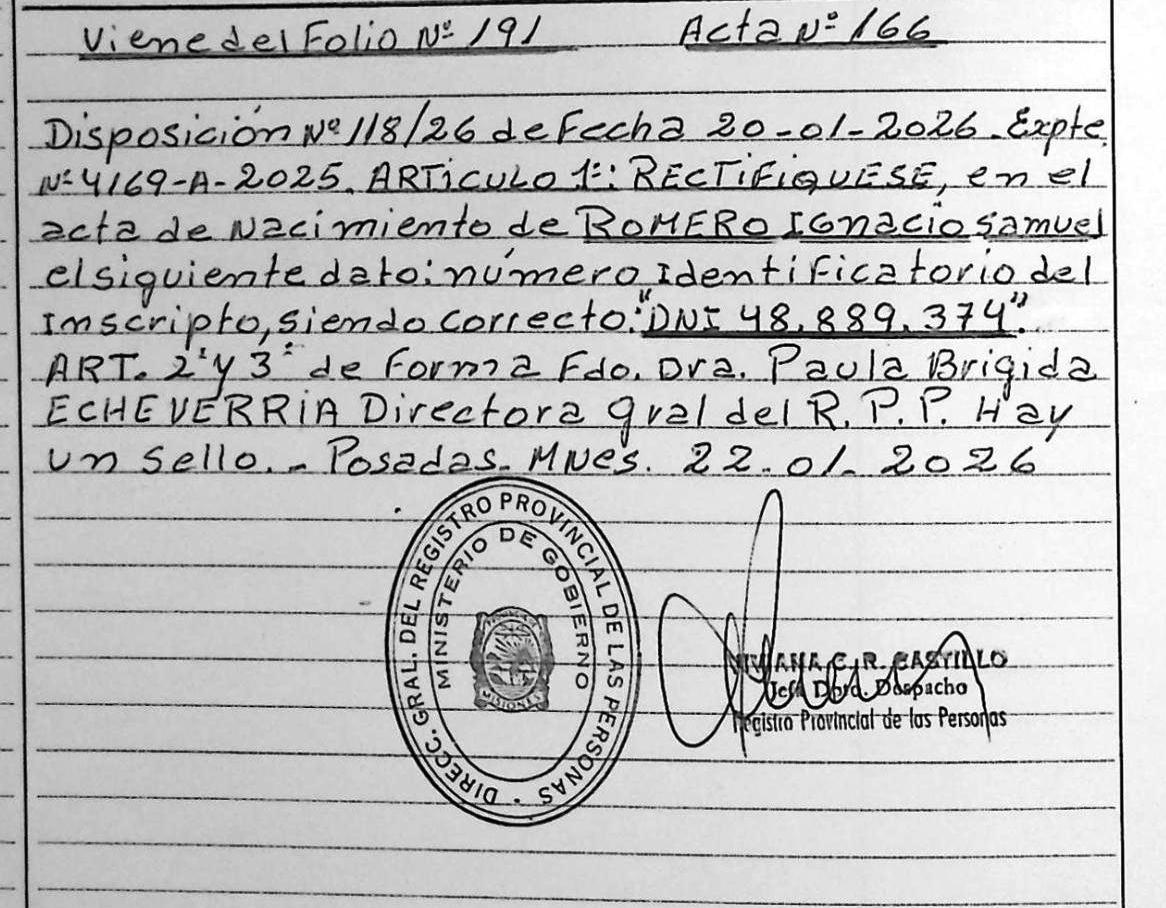 Viene del Folio Nº 191 Acta Nº 166
Disposición Nº 118/26 de Fecha 20-01-2026. Expte.
Nº 4169-A-2025. ARTICULO 1º: RECTIFIQUESE, en el
acta de Nacimiento de ROMERO IGnacio Samuel
el siguiente dato: número Identificatorio del
Inscripto, siendo correcto: "DNI 48.889.374".
ART. 2º y 3º de Forma Fdo. Dra. Paula Brigida
ECHEVERRIA Directora gral del R.P.P. Hay
un sello. - Posadas. Mnes. 22-01-2026
DIRECC. GRAL. DEL REGISTRO PROVINCIAL DE LAS PERSONAS
MINISTERIO DE GOBIERNO
MISIONES
VIVIANA C. R. CASTILLO
Jefa Dpto. Despacho
Registro Provincial de las Personas